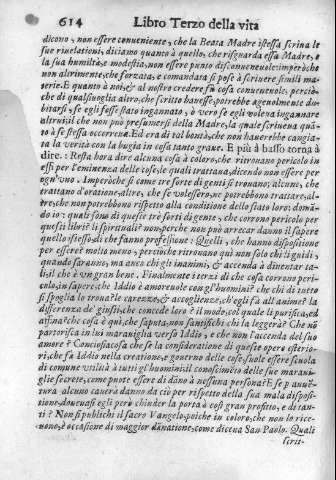 614 Libro Terzo della vita
dicono, non essere conueniente, che la Beata Madre istessa scriua le
sue riuelationi, diciamo quanto à quello, che risguarda essa Madre, e
la sua humiltà, e modestia, non essere punto disconueneuole: imperòche
non altrimente, che forzata, e comandata si pose à scriuere simili ma-
terie. E quanto à noi, & al nostro credere fù cosa conueneuole: percio-
che di qualsiuoglia altro, che scritto hauesse, potrebbe ageuolmente du-
bitarsi, se egli fosse stato ingannato, ò vero se egli voleua ingannare
altrui, il che non può presumersi della Madre, la quale scriueua quā-
to à se stessa occorreua. Ed era di tal bontà, che non hauerebbe cangia-
ta la verità con la bugia in cosa tanto graue. E più à basso torna à
dire. : Resta hora dire alcuna cosa à coloro, che ritrouano pericolo in
essi per l'eminenza delle cose, le quali trattaua, dicendo non essere per
ogn'vno. Imperòche si come tre sorte di genti si trouano; alcuni, che
trattano d'oratione: altre, che se volessero, ne potrebbono trattare: al-
tre, che non potrebbono rispetto alla conditione dello stato loro: domā-
do io: quali sono di queste trè sorti di gente, che corrono pericolo per
questi libri? li spirituali? non: perche non può arrecar danno il sapere
quello istesso, di che fanno professione: Quelli, che hanno dispositione
per essere? molto meno; percioche ritrouano quì non solo chi li guidi,
quando saranno, ma anco chi gli inanimi, & accenda à diuentar ta-
li, il che è vn gran bene. Finalmente i terzi di che cosa corrono peri-
colo, in sapere, che Iddio è amoreuole con gl'huomini? che chi di tutto
si spoglia lo troua? le carezze, & accoglienze, ch'egli fà all'anime? la
differenza de' giusti, che concede loro? il modo, col quale li purifica, ed
affina? che cosa è quì, che saputa, non santifichi chi la leggerà? Che nō
partorisca in lui marauiglia verso Iddio, e che non l'accenda del suo
amore? Conciosiacosa che se la consideratione di queste opere esterio-
ri, che fà Iddio nella creatione, e gouerno delle cose, suole essere scuola
di comune vtilità à tutti gl'huomini, il conoscimēto delle sue maraui-
glie secrete, come puote essere di dāno à nessuna persona? E se p auuē-
tura alcuno cauerà danno da ciò per rispetto della sua mala disposi-
tione, doueuasi egli però chiuder la porta à così gran profitto, e di tan-
ti? Non si publichi il sacro Vangelo, poiche in coloro, che non lo rice-
uono, è occasione di maggior dānatione, come diceua San Paolo. Quali
scrit-